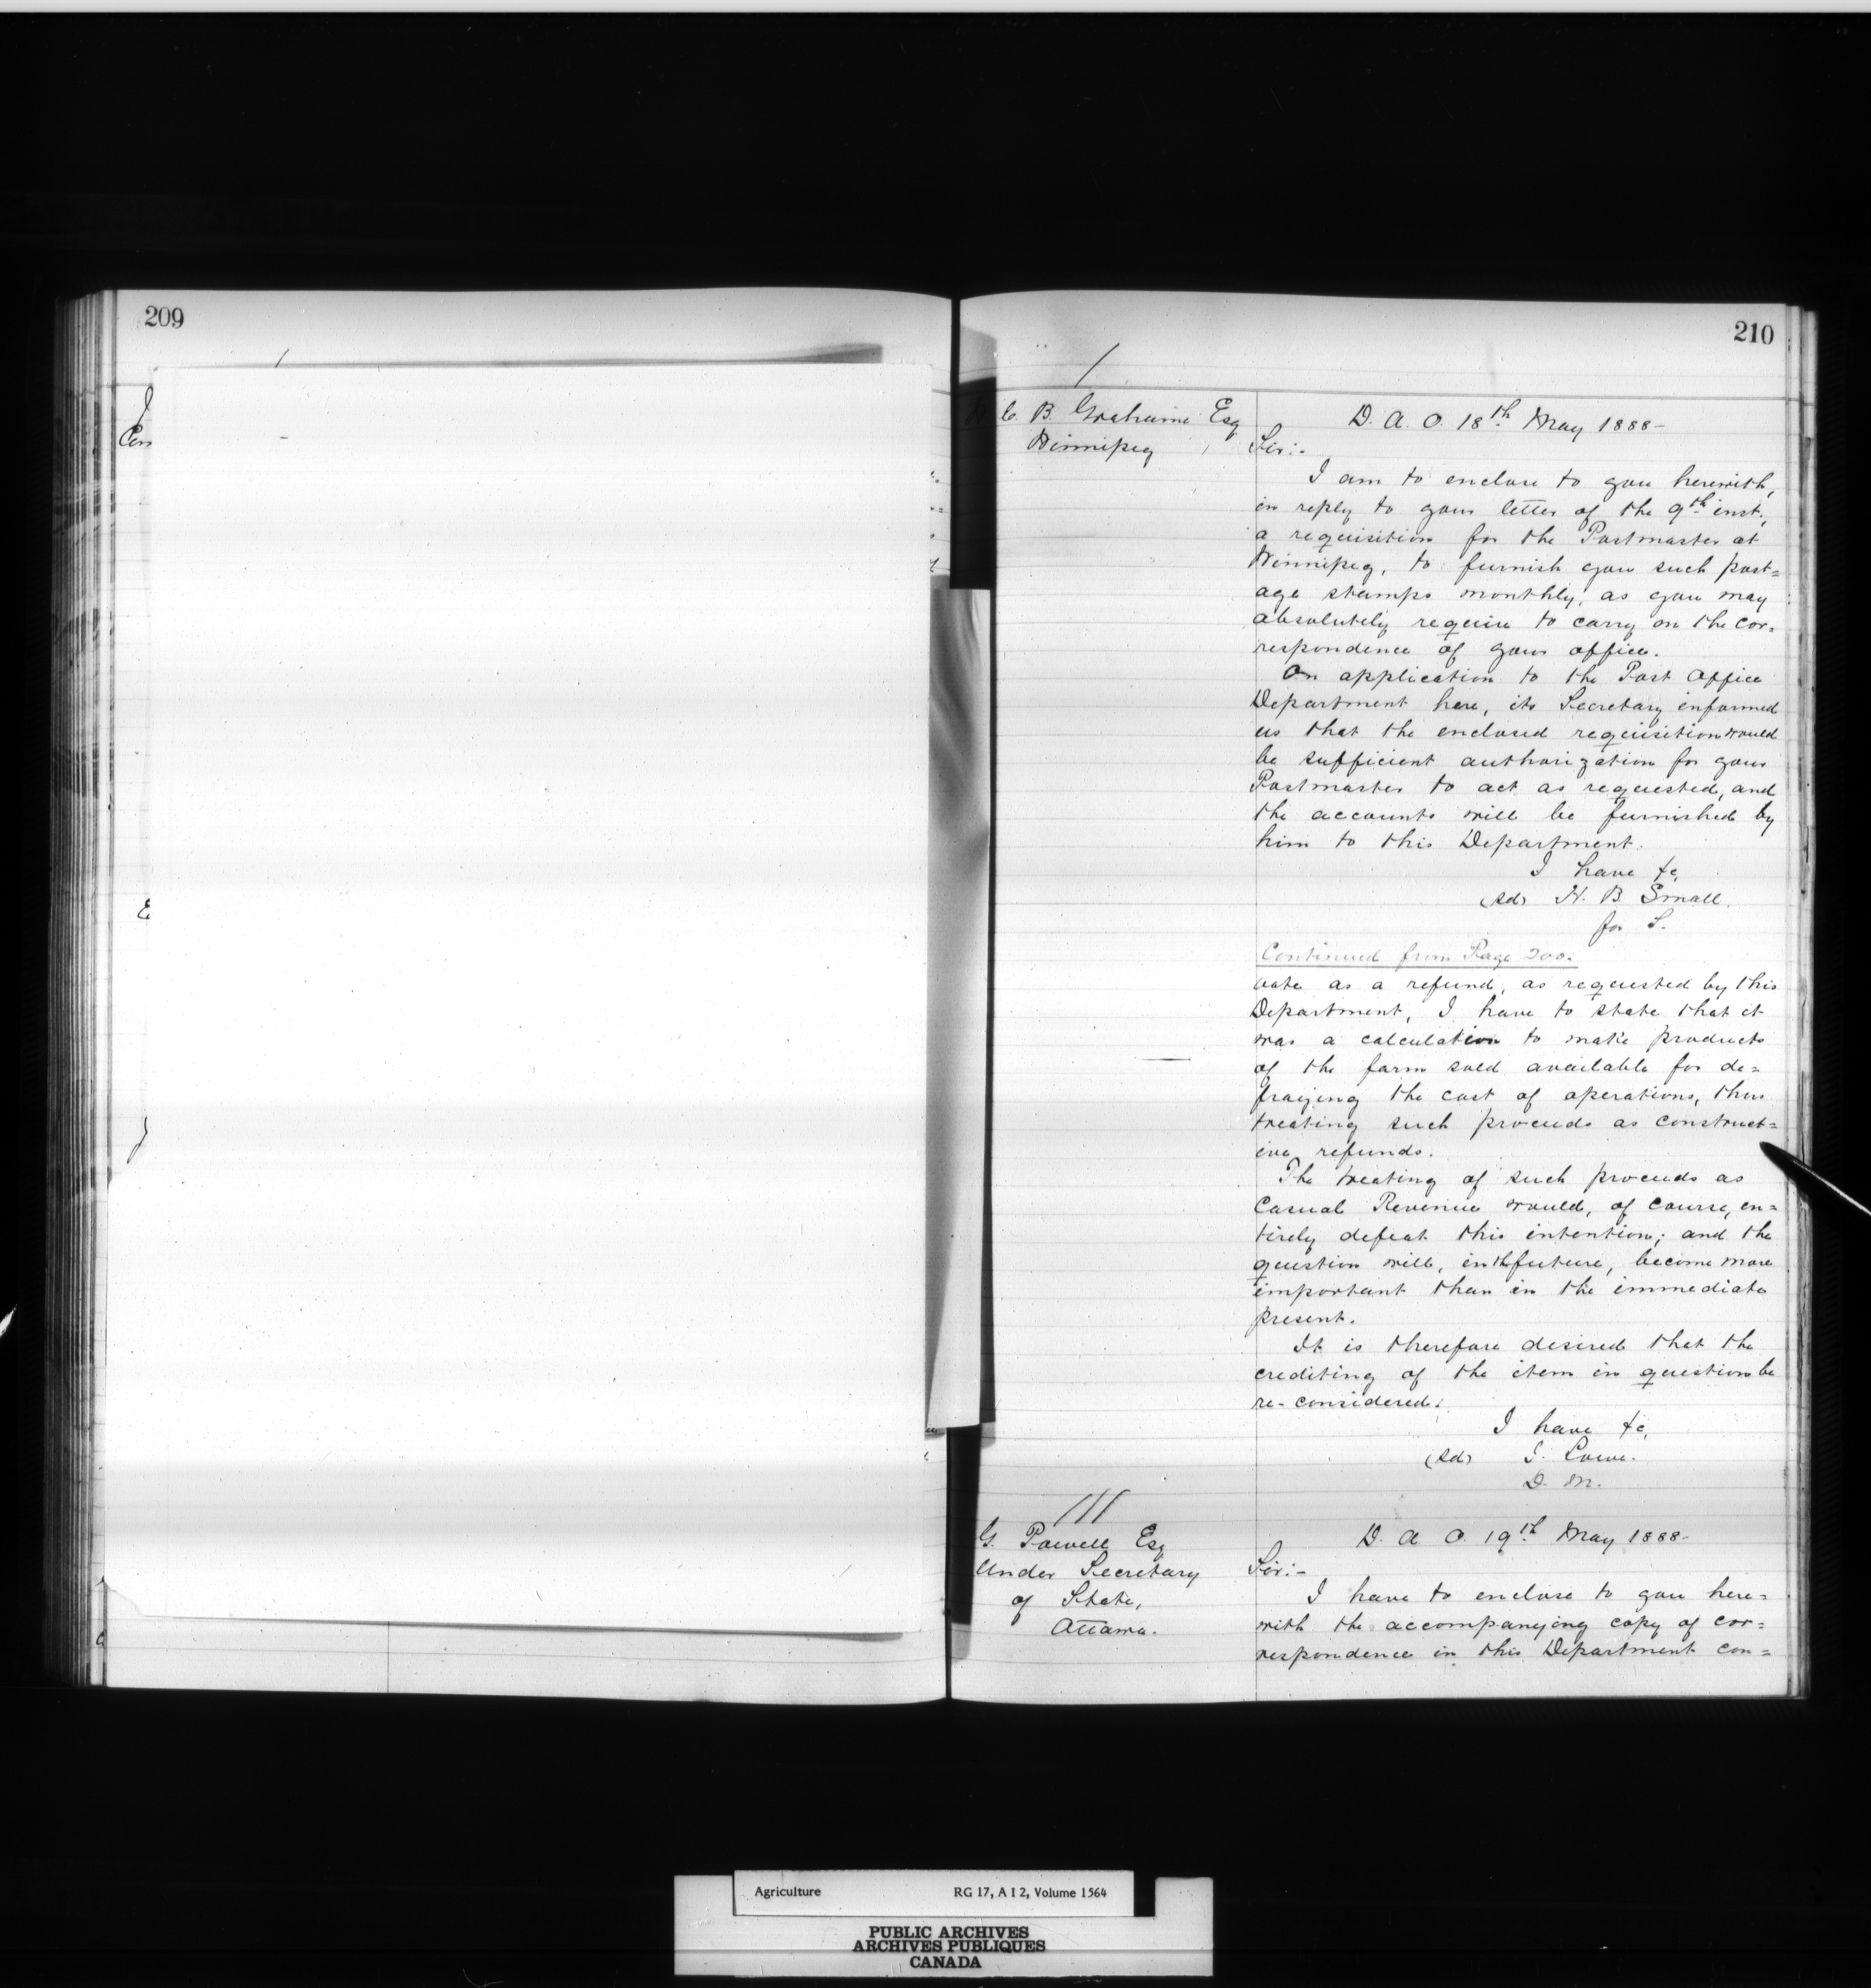 209
210
C. B. Grahame Esq
Winnipeg
D. A. O. 18th May 1888-
Sir:-
I am to enclose to you herewith,
in reply to your letter of the 9th inst.,
a requisition for the Postmaster at
Winnipeg, to furnish you such post=
age stamps monthly, as you may
absolutely require to carry on the cor=
respondence of your office.
On application to the Post Office
Department here, its Secretary informed
us that the enclosed requisition would
be sufficient authorization for your
Postmaster to act as requested, and
the accounts will be furnished by
him to this Department.
I have &c,
(sd) H. B. Small.
for S.
Continued from Page 200.
vote as a refund, as requested by this
Department, I have to state that it
was a calculation to make products
of the farm sold available for de=
fraying the cost of operations, thus
treating such proceeds as construct=
ive refunds.
The treating of such proceeds as
Casual Revenue would, of course, en=
tirely defeat this intention; and the
question will, in the future, become more
important than in the immediate
present.
It is therefore desired that the
crediting of the item in question be
re-considered.
I have &c,
(sd) J. Lowe.
D. M.
G. Powell Esq
Under Secretary
of State,
Ottawa.
D. A. O. 19th May 1888-
Sir:-
I have to enclose to you here=
with the accompanying copy of cor=
respondence in this Department con=
Agriculture RG 17, A I 2, Volume 1564
PUBLIC ARCHIVES
ARCHIVES PUBLIQUES
CANADA